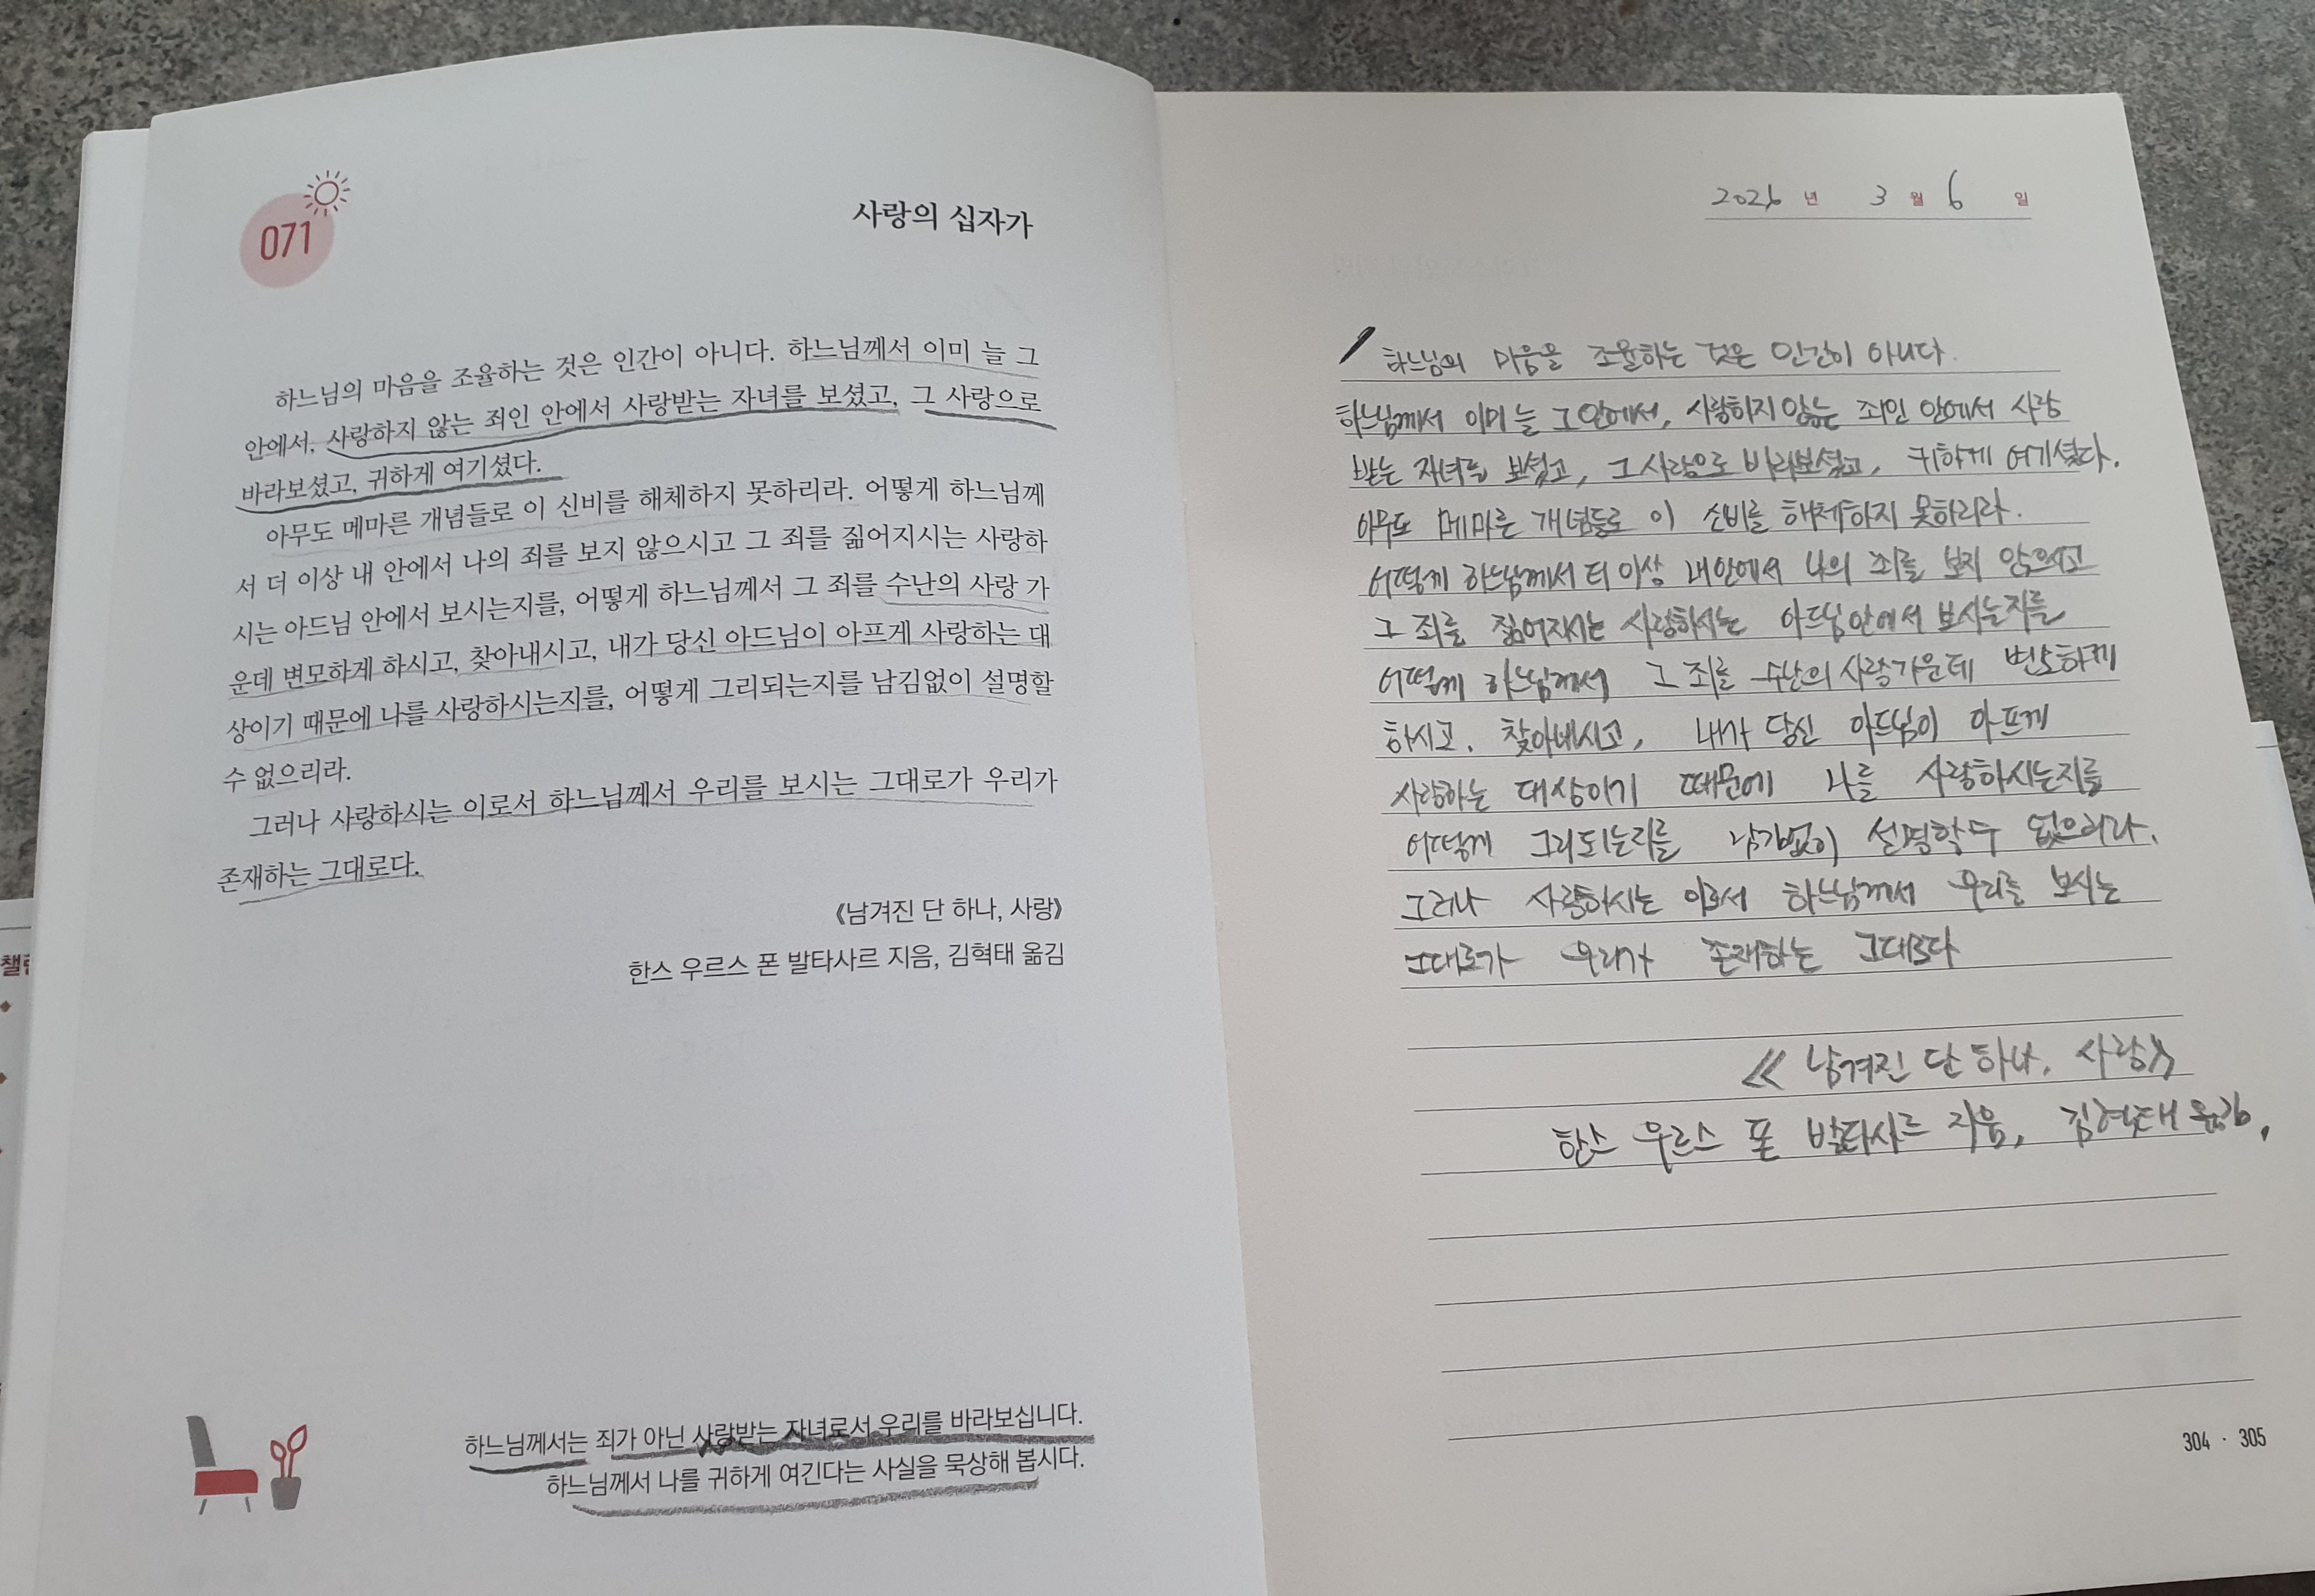 071
사랑의 십자가
하느님의 마음을 조율하는 것은 인간이 아니다. 하느님께서 이미 늘 그
안에서, 사랑하지 않는 죄인 안에서 사랑받는 자녀를 보셨고, 그 사랑으로
바라보셨고, 귀하게 여기셨다.
아무도 메마른 개념들로 이 신비를 해체하지 못하리라. 어떻게 하느님께
서 더 이상 내 안에서 나의 죄를 보지 않으시고 그 죄를 짊어지시는 사랑하
시는 아드님 안에서 보시는지를, 어떻게 하느님께서 그 죄를 수난의 사랑 가
운데 변모하게 하시고, 찾아내시고, 내가 당신 아드님이 아프게 사랑하는 대
상이기 때문에 나를 사랑하시는지를, 어떻게 그리되는지를 남김없이 설명할
수 없으리라.
그러나 사랑하시는 이로서 하느님께서 우리를 보시는 그대로가 우리가
존재하는 그대로다.
《남겨진 단 하나, 사랑》
한스 우르스 폰 발타사르 지음, 김혁태 옮김
하느님께서는 죄가 아닌 사랑받는 자녀로서 우리를 바라보십니다.
하느님께서 나를 귀하게 여긴다는 사실을 묵상해 봅시다.
2026 년 3 월 6 일
하느님의 마음을 조율하는 것은 인간이 아니다.
하느님께서 이미 늘 그 안에서, 사랑하지 않는 죄인 안에서 사랑
받는 자녀를 보셨고, 그 사랑으로 바라보셨고, 귀하게 여기셨다.
아무도 메마른 개념들로 이 신비를 해체하지 못하리라.
어떻게 하느님께서 더 이상 내 안에서 나의 죄를 보지 않으시고
그 죄를 짊어지시는 사랑하시는 아드님 안에서 보시는지를
어떻게 하느님께서 그 죄를 수난의 사랑 가운데 변모하게
하시고, 찾아내시고, 내가 당신 아드님이 아프게
사랑하는 대상이기 때문에 나를 사랑하시는지를
어떻게 그리되는지를 남김없이 설명할 수 없으리라.
그러나 사랑하시는 이로서 하느님께서 우리를 보시는
그대로가 우리가 존재하는 그대로다
《남겨진 단 하나, 사랑》
한스 우르스 폰 발타사르 지음, 김혁태 옮김,
304 · 305